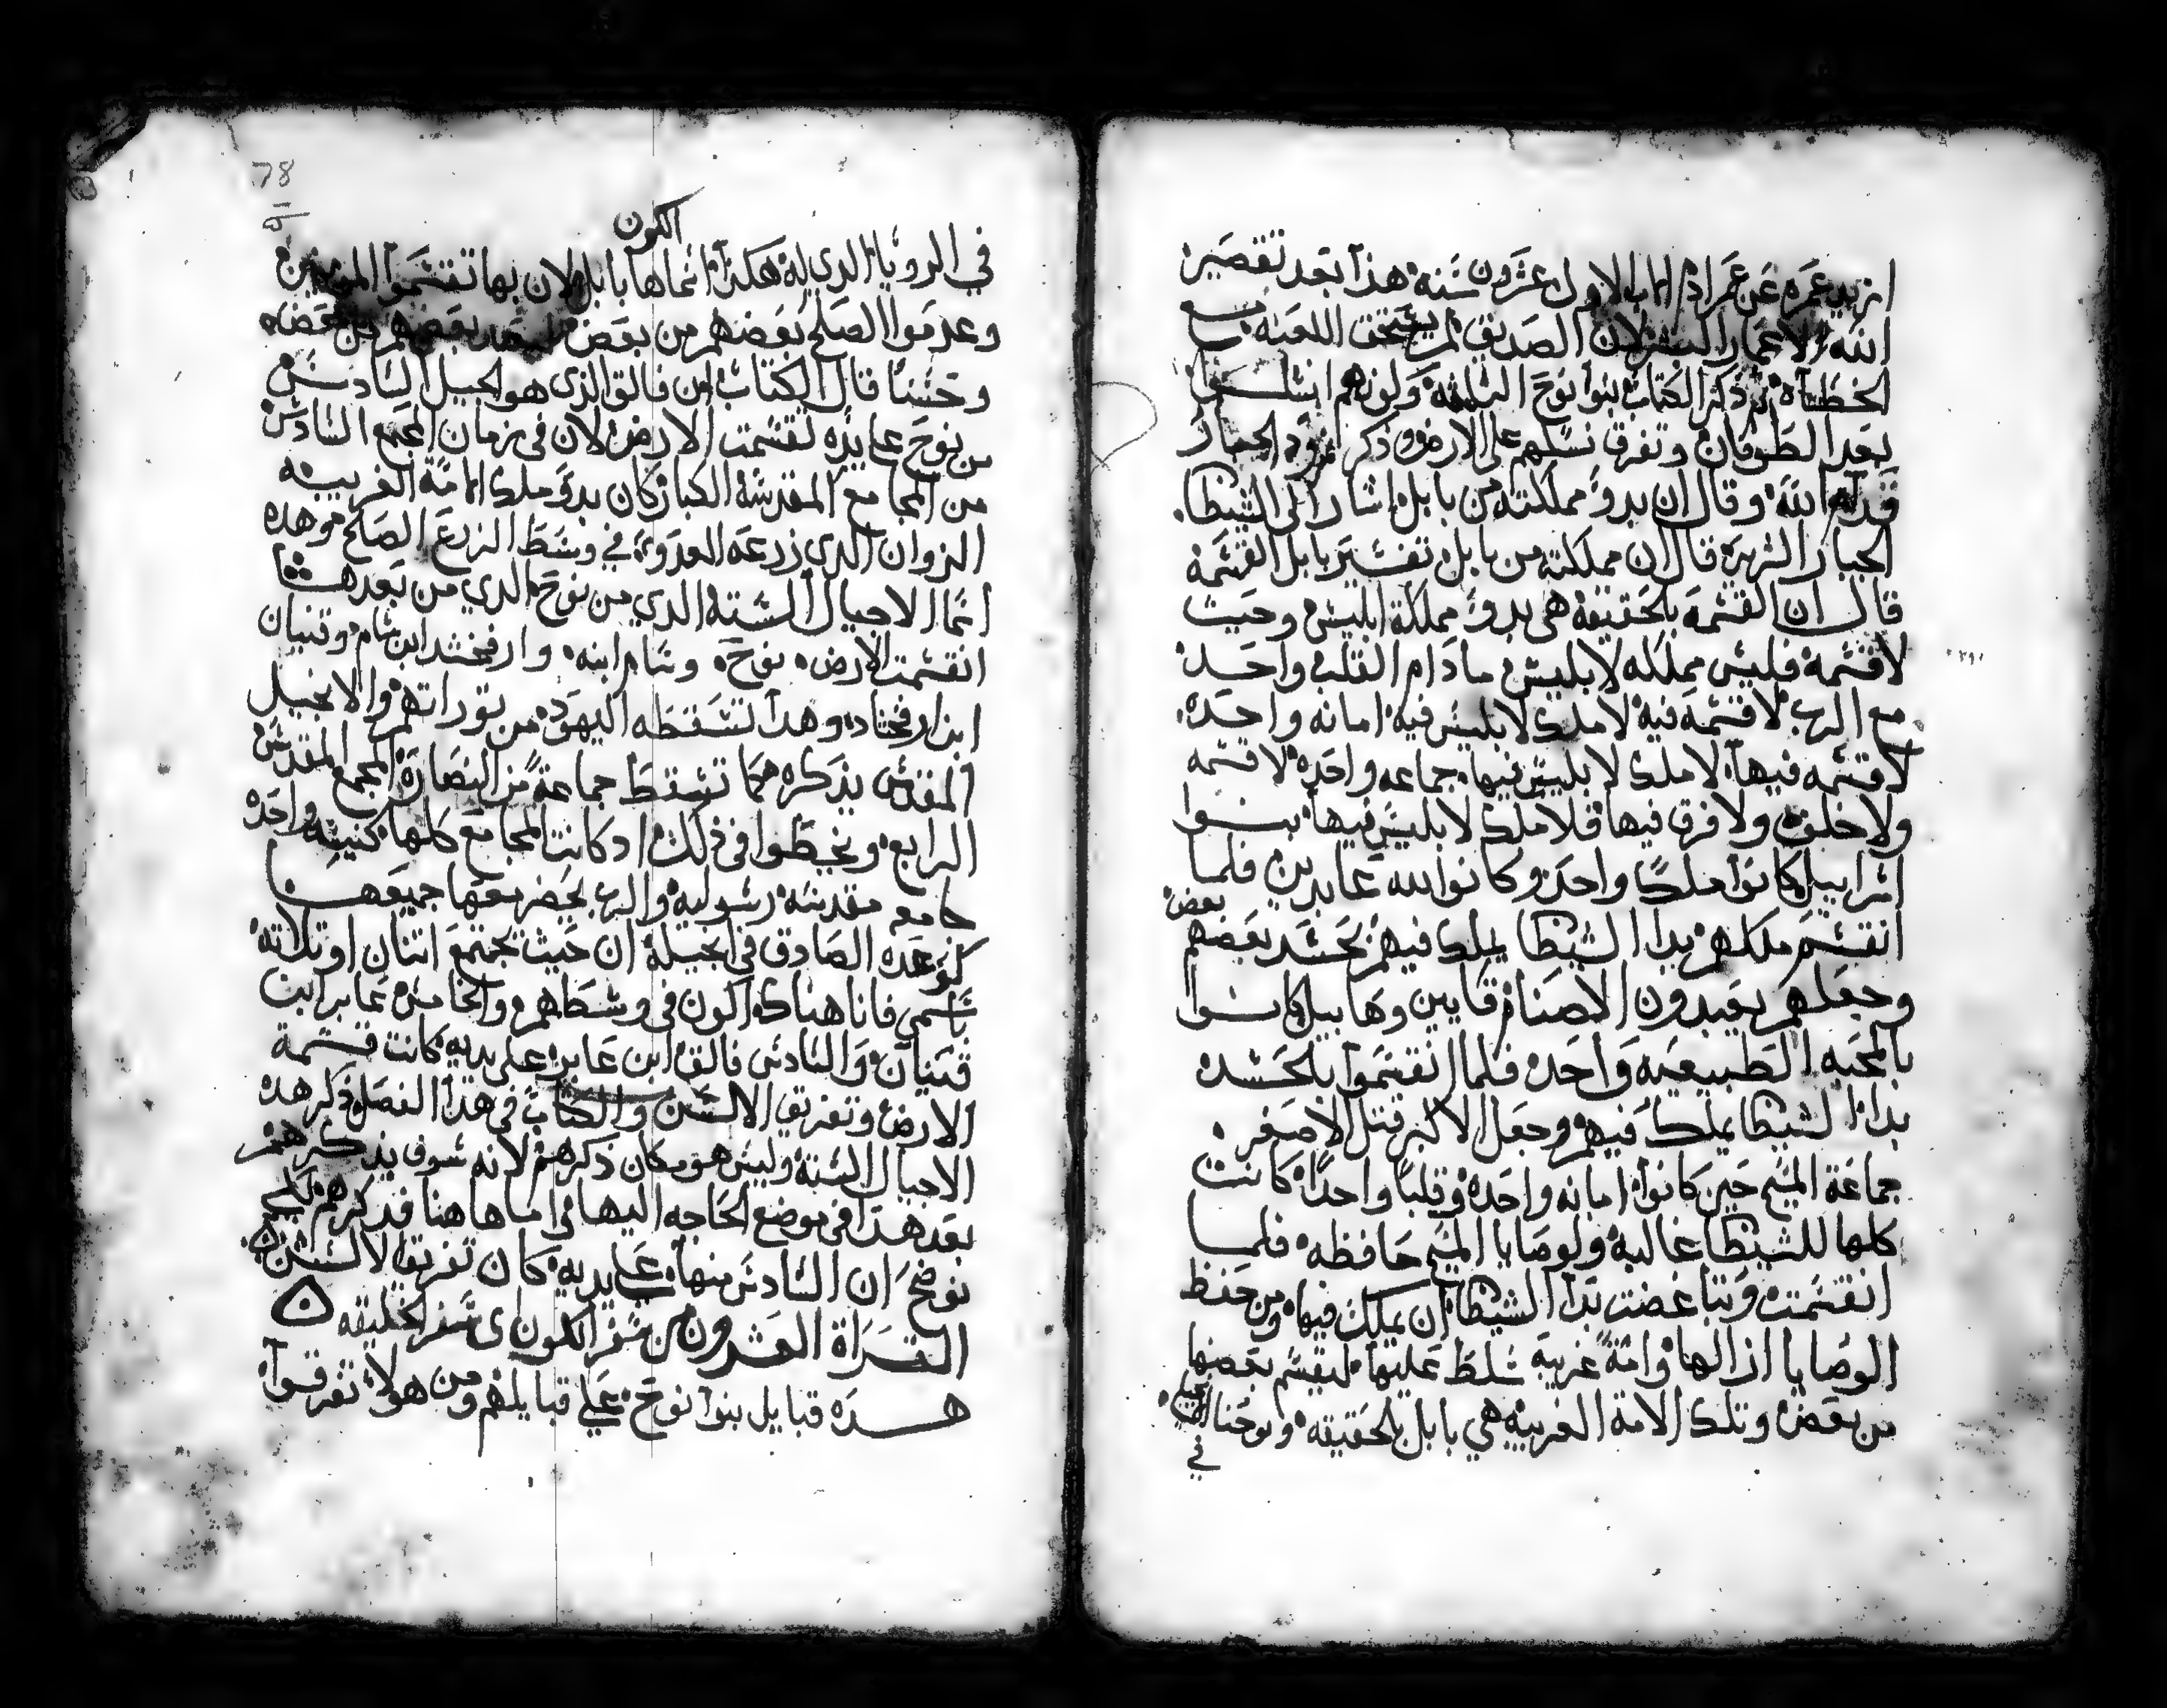 ازيد عمره عن عمر ادم الاب الاول عشرون سنه هذا بعد تقصير
الله الاعمار البشر لان الصديق لم يستحق اللعنه مع
الخطاه ثم ذكر الكتاب بنوا نوح الثلثه ولونهم انتشلوا
بعد الطوفان وتفرق نسلهم على الارض وذكر نمرود الجبار
قدام الله وقال ان بدو مملكته من بابل اشار الى الشيطان
الجبار الشرير قال ان مملكته من بابل تفسير بابل القسمه
قال ان القسمه بالحقيقه هى بدو مملكة ابليس وحيث
لاقسمه فليس مملكه لابليس ما دام القلب واحد
مع الرب لاقسمه فيه لاملك لابليس فيه امانه واحده
لاقسمه فيها لاملك لابليس فيها جماعه واحده لاقسمه
ولاخلف ولا فرق فيها فلاملك لابليس فيها بنوا
اسراييل كانوا ملكا واحد وكانوا لله عابدين فلما
انقسم ملكهم بدا الشيطان يملك فيهم بحسد بعضهم بعض
وجعلهم يعبدون الاصنام قايين وهابيل كانوا
بالمحبه الطبيعيه واحده فلما انقسموا بالحسد
بدا الشيطان يملك فيهم وجعل الاكبر قتل الاصغر
جماعة المسيح حين كانوا امانه واحده وقلبا واحدا كانت
كلها للشيطان غالبه ولوصايا المسيح حافظه فلما
انقسمت وتباغضت بدا الشيطان ان يملك فيها ومن حفظ
الوصايا ازالها وامة غريبة سلط عليها ليقسم بعضها
من بعض وتلك الامة الغريبه هي بابل بالحقيقه ويوحنا
في
78
الكون
في الرويا الذي له هكذا اسماها بابل لان بها تقسموا
وعدموا الصلح بعضهم من بعض بعضهم من بعض
وحسنا قال الكتاب ان فالق الذى هو الجيل السادس
من نوح على يده تقسمت الارض لان فى زمان المجمع السادس
من المجامع المقدسة الكبار كان بدو ملك الامة الغريبه
الزوان الذى زرعه العدو في وسط الزرع الصالح وهذه
اسما الاجيال السته الذي من نوح الذي من بعدها
انقسمت الارض نوح وسام ابنه وارفخشد ابن سام وقينان
ابن ارفخشاد وهذا تسقطه اليهود من توراتهم والانجيل
المقدس يذكره كما تسقط جماعة من النصارى المجمع المقدس
الرابع ويخطوا فى ذلك اد كانت المجامع كلها كنيسه واحده
جامعه مقدسه رسوليه والرب يحضر معها جميعها
كوعده الصادق فى انجيله ان حيث تجتمع اتنان او تلاته
باسمي فانا هناك اكون فى وسطهم والخامس عابر ابن
قينان والسادس فالق ابن عابر على يديه كانت قسمة
الارض وتفريق الالسن والكتاب فى هذا الفصل ذكر هذه
الاجيال السته وليس هو مكان ذكرهم لانه سوف يذكرهم
بعد هذا فى موضع الحاجه اليها فاما هاهنا فذكرهم لكي
يوضح ان السادس منها على يديه كان تفريق الالسن
القراة العشرون من سفر الكون اى سفر الخليقه
هذه قبايل بنوا نوح على قبايلهم ومن هولا تفرقوا